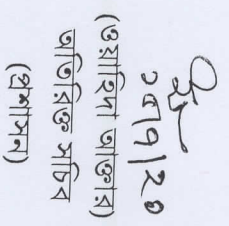 ১৫/৭/২০
(ওয়াহিদা আক্তার)
অতিরিক্ত সচিব
(প্রশাসন)